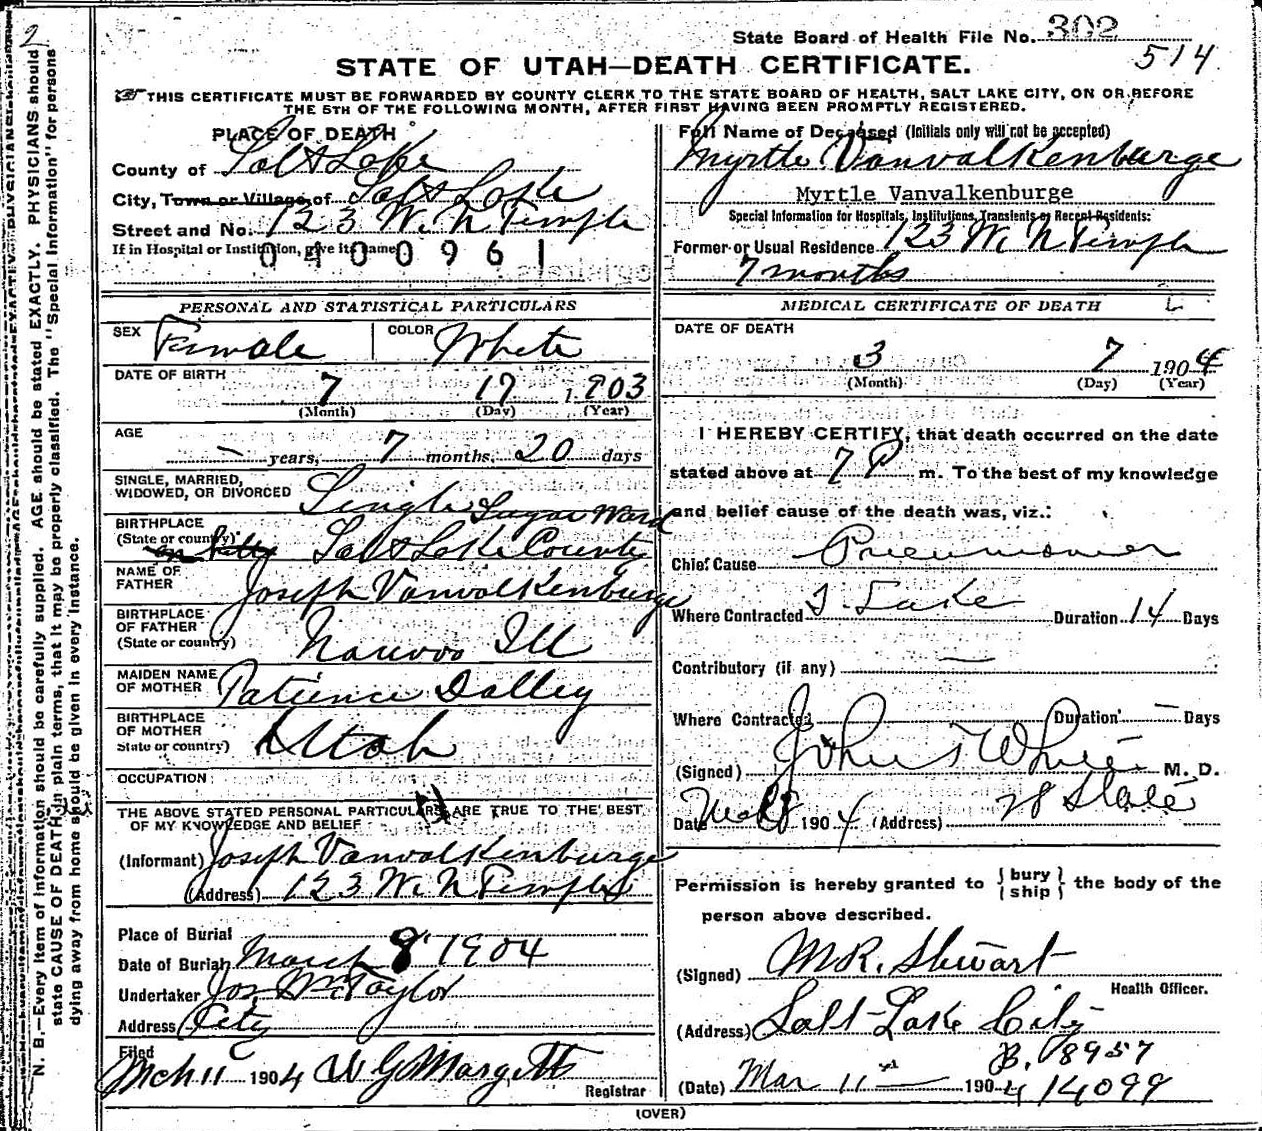 2
State Board of Health File No. 302
514
STATE OF UTAH—DEATH CERTIFICATE.
THIS CERTIFICATE MUST BE FORWARDED BY COUNTY CLERK TO THE STATE BOARD OF HEALTH, SALT LAKE CITY, ON OR BEFORE
THE 5TH OF THE FOLLOWING MONTH, AFTER FIRST HAVING BEEN PROMPTLY REGISTERED.
PLACE OF DEATH
County of Salt Lake
City, Town or Village of Salt Lake
Street and No. 123 W. N Temple
If in Hospital or Institution, give its name
0400961
Full Name of Deceased (Initials only will not be accepted)
Myrtle Vanvalkenburge
Myrtle Vanvalkenburge
Special Information for Hospitals, Institutions, Transients or Recent Residents:
Former or Usual Residence 123 W. N Temple
7 months
PERSONAL AND STATISTICAL PARTICULARS
SEX Female COLOR White
DATE OF BIRTH
7 17 1903
(Month) (Day) (Year)
AGE
— years, 7 months, 20 days
SINGLE, MARRIED,
WIDOWED, OR DIVORCED Single
Sugar Ward
BIRTHPLACE
(State or country) Salt Lake County
NAME OF
FATHER Joseph Vanvalkenburge
BIRTHPLACE
OF FATHER
(State or country) Nauvoo Ill
MAIDEN NAME
OF MOTHER Patience Dalley
BIRTHPLACE
OF MOTHER
State or country) Utah
OCCUPATION
THE ABOVE STATED PERSONAL PARTICULARS ARE TRUE TO THE BEST
OF MY KNOWLEDGE AND BELIEF
(Informant) Joseph Vanvalkenburge
(Address) 123 W. N Temple
Place of Burial
Date of Burial March 8 1904
Undertaker Jos Wm Taylor
Address City
Filed
Mch 11 1904 W G Margetts
Registrar
MEDICAL CERTIFICATE OF DEATH
DATE OF DEATH
3 7 1904
(Month) (Day) (Year)
I HEREBY CERTIFY, that death occurred on the date
stated above at 7 P m. To the best of my knowledge
and belief cause of the death was, viz.:
Chief Cause Pneumonia
Where Contracted S. Lake Duration 14 Days
Contributory (if any) —
Where Contracted Duration — Days
(Signed) John T White M. D.
Date Mch 8 1904 (Address) 28 State
Permission is hereby granted to { bury / ship } the body of the
person above described.
(Signed) M R. Stewart
Health Officer.
(Address) Salt Lake City
B. 8957
(Date) Mar 11 — 1904 14099
(OVER)
N. B.—Every item of information should be carefully supplied. AGE should be stated EXACTLY. PHYSICIANS should
state CAUSE OF DEATH in plain terms, that it may be properly classified. The "Special Information" for persons
dying away from home should be given in every instance.